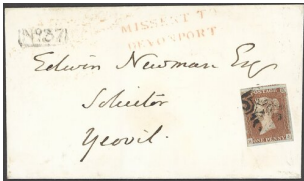 No. 37
MISSENT TO
DEVONPORT
Edwin Newman Esq
Solicitor
Yeovil.
ONE PENNY